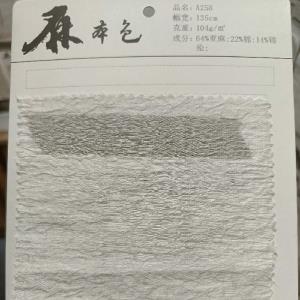 麻本色
品名：A258
幅宽：135cm
克重：104g/㎡
成分：64%亚麻;22%棉;14%锦
纶;